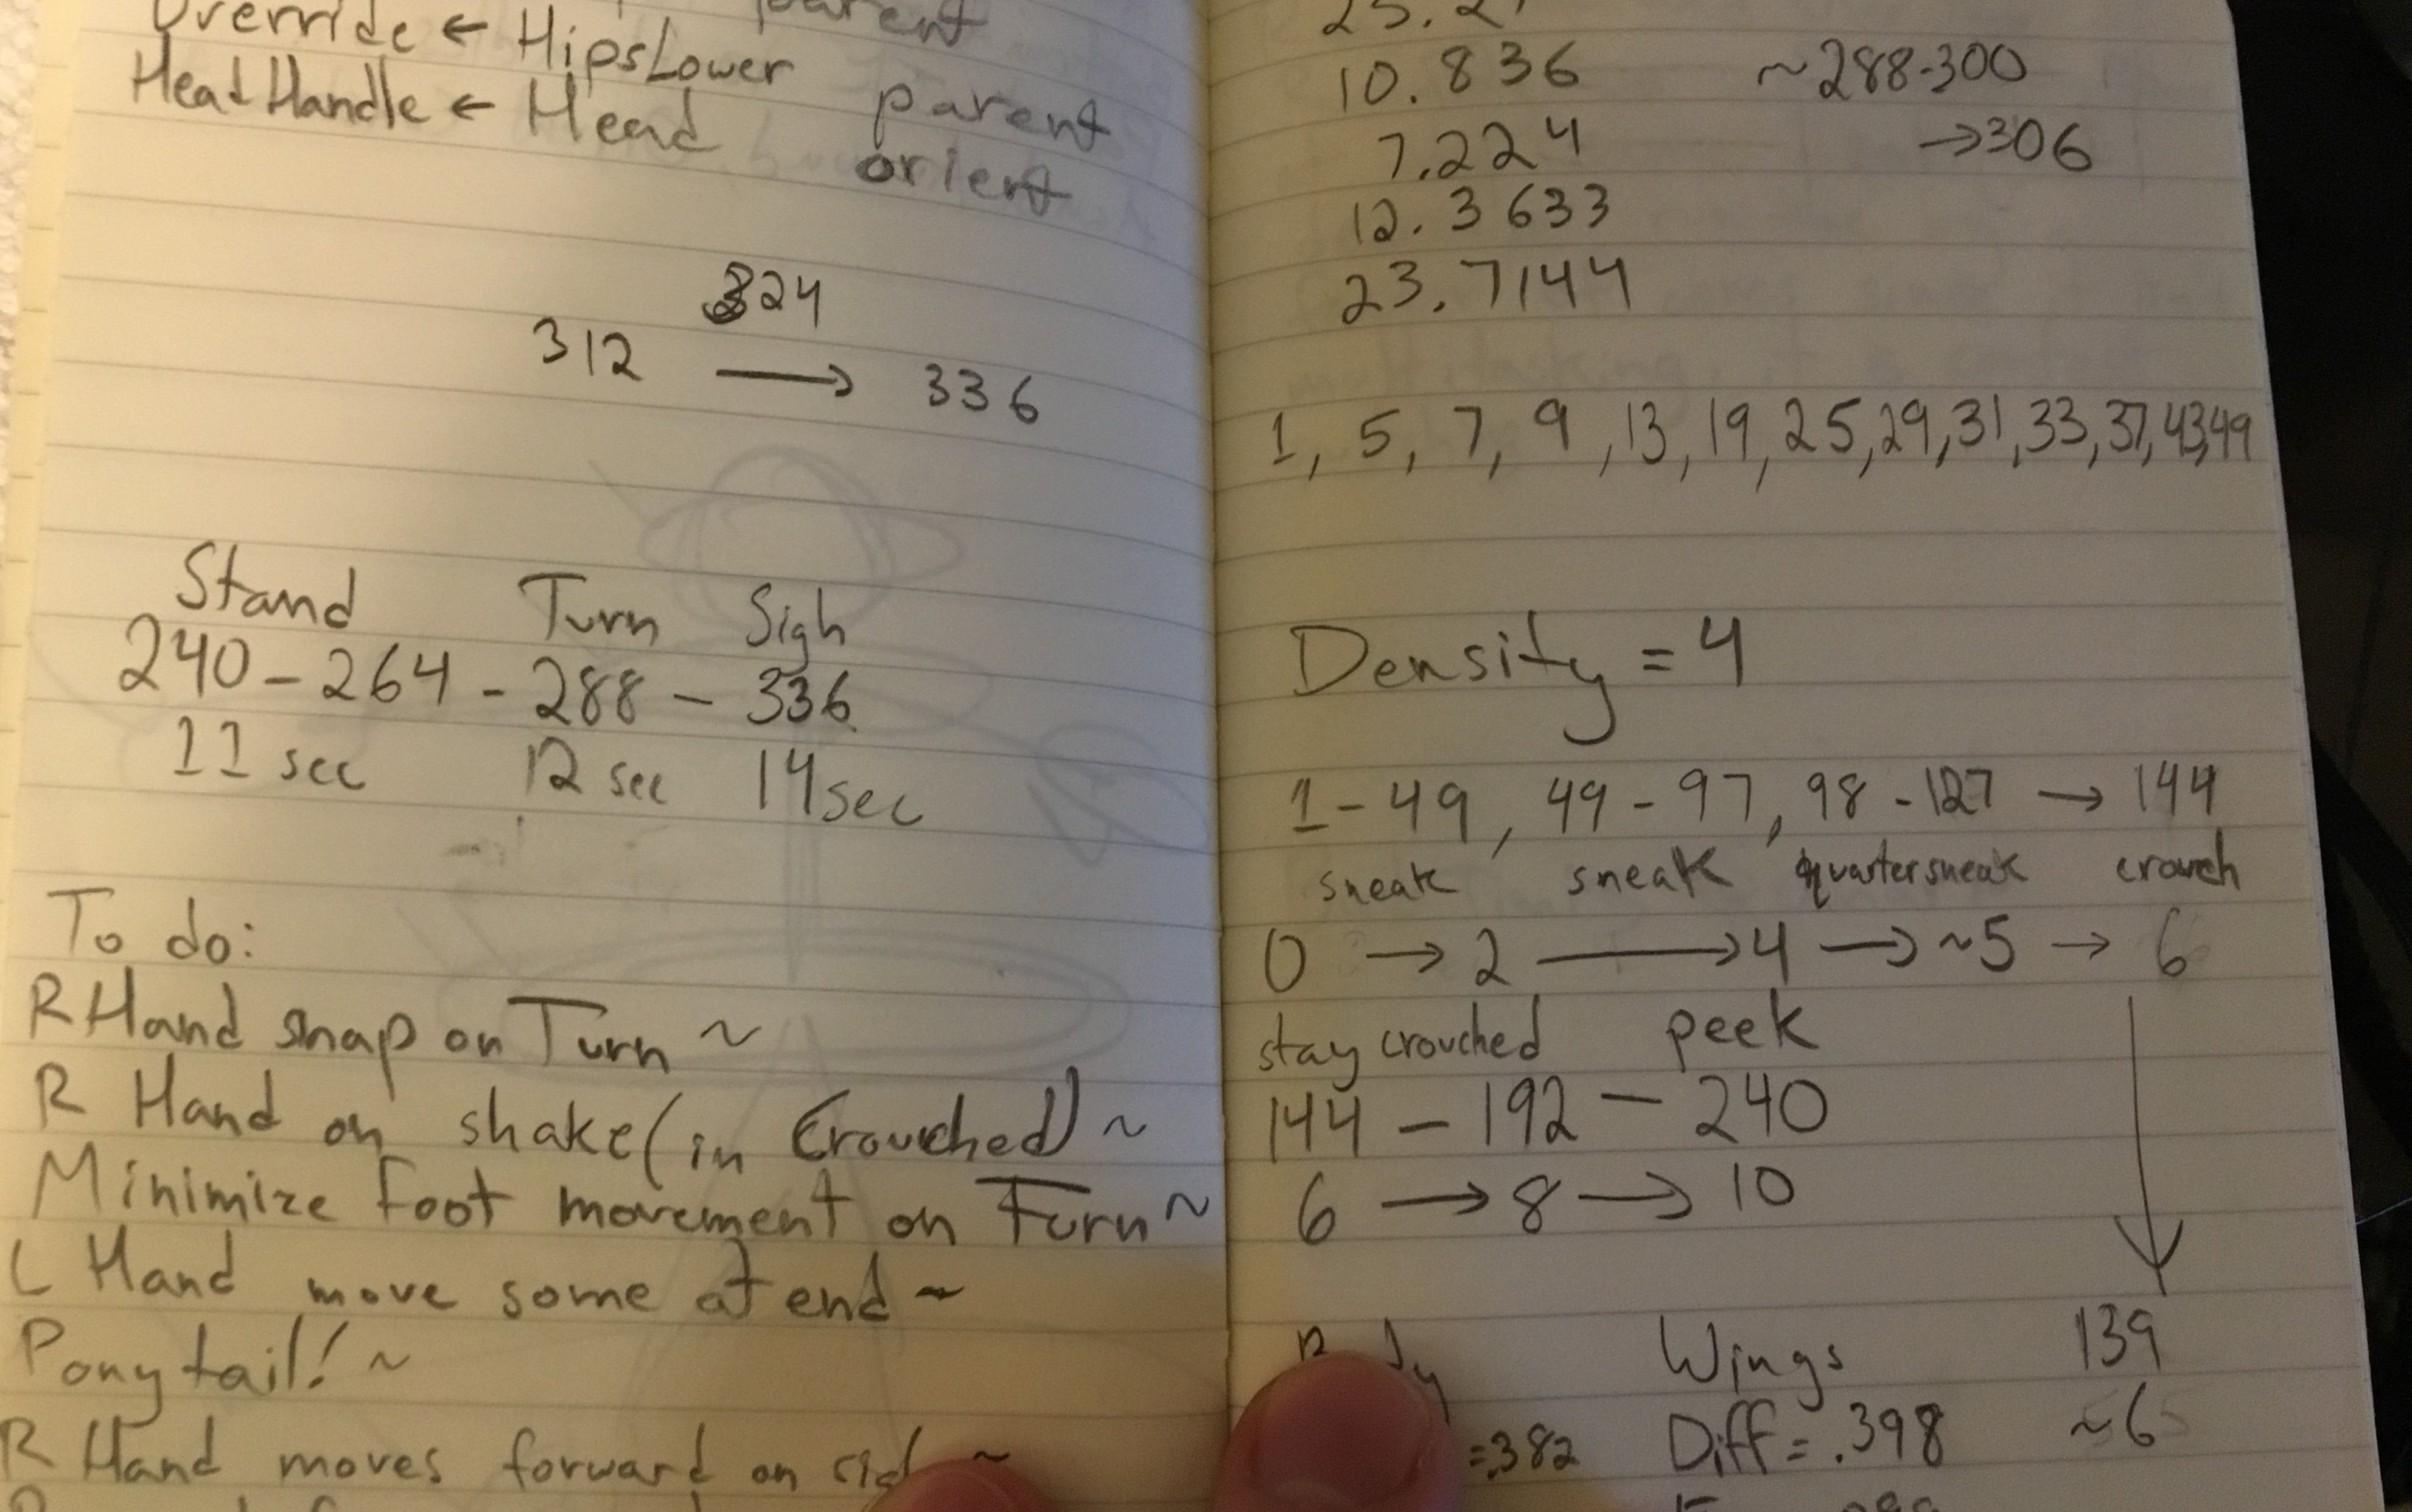 parent
Override ← HipsLower
HeadHandle ← Head parent
orient
324
312 → 336
Stand Turn Sigh
240 - 264 - 288 - 336
11 sec 12 sec 14 sec
To do:
R Hand snap on Turn ~
R Hand on shake (in Crouched) ~
Minimize foot movement on Turn ~
L Hand move some at end ~
Ponytail! ~
R Hand moves forward on ~
10.836 ~288-300
7.224 →306
12.3633
23.7144
1, 5, 7, 9, 13, 19, 25, 29, 31, 33, 37, 43, 49
Density = 4
1-49, 49-97, 98-127 → 144
sneak sneak quartersneak crouch
0 → 2 → 4 → ~5 → 6
stay crouched peek
144 - 192 - 240
6 → 8 → 10
Wings 139
=.382 Diff = .398 ~6